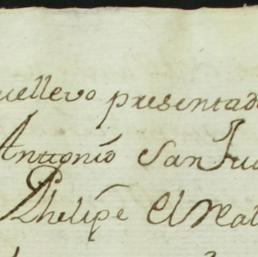 uellevo presentad
Anttonio San Jua
Phelipe El Real